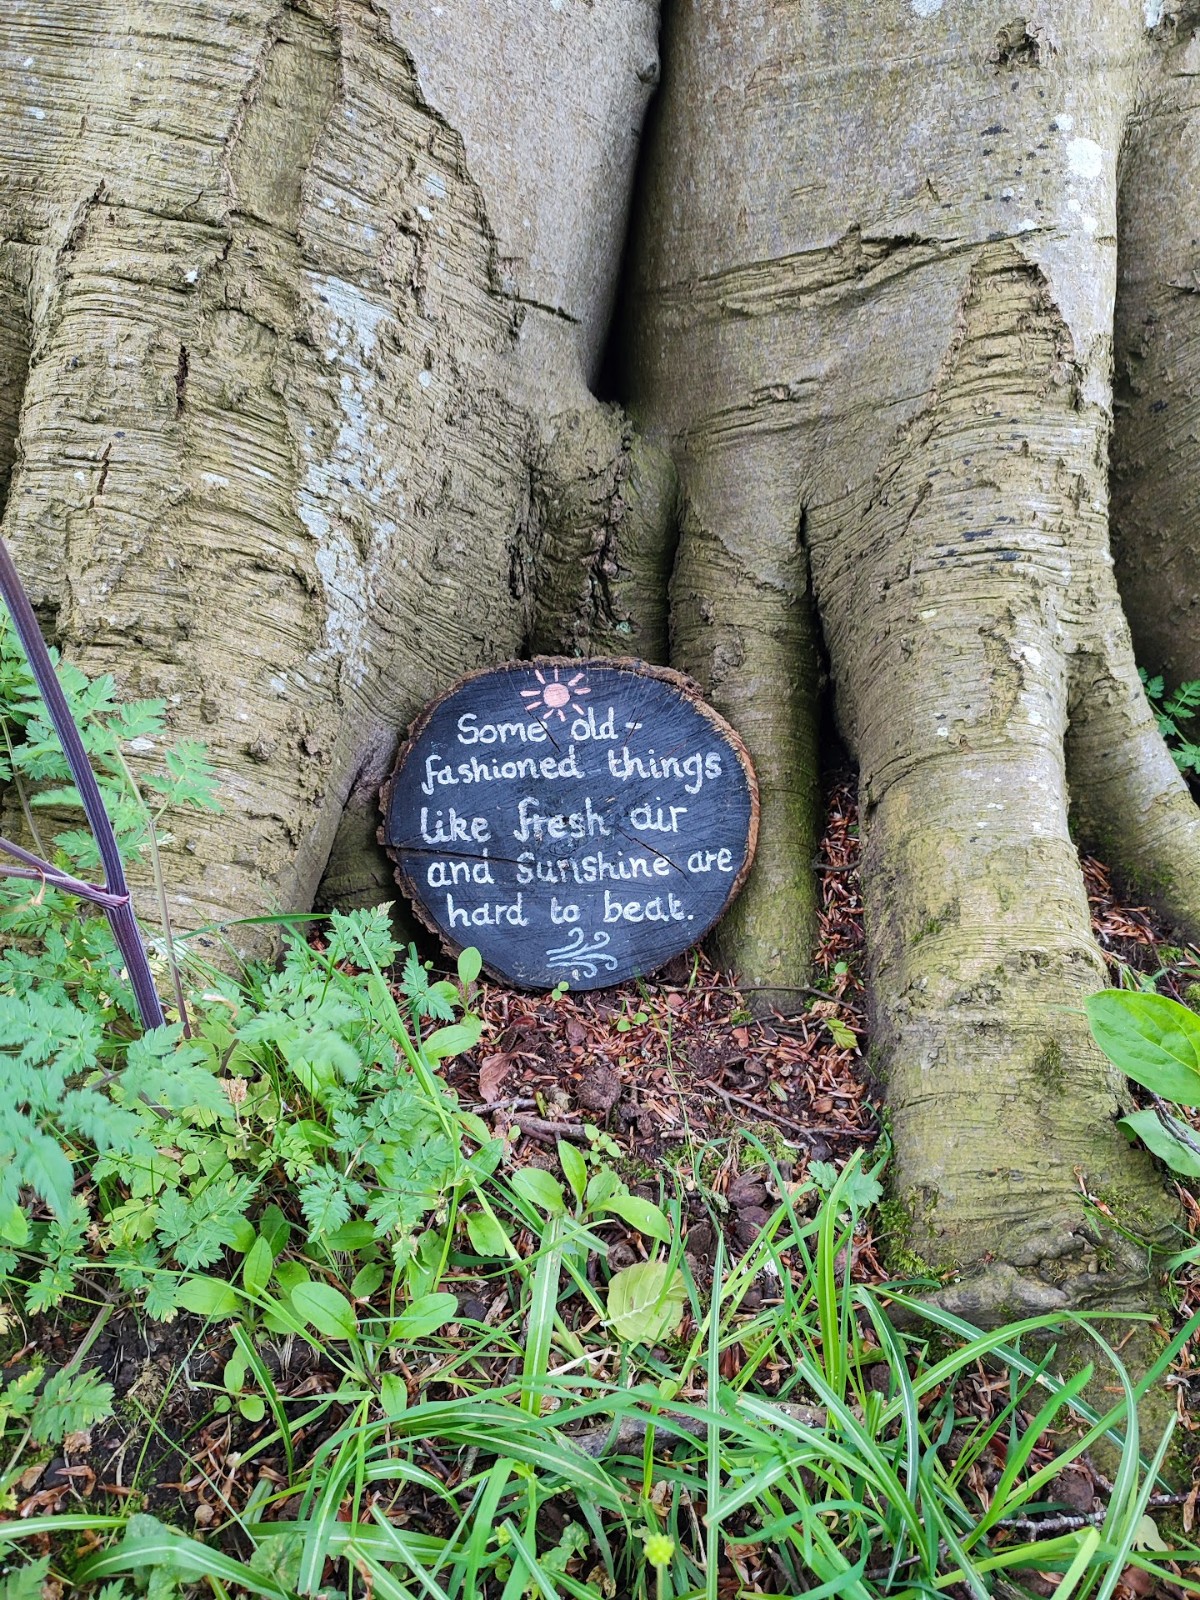 Some old-
fashioned things
like fresh air
and sunshine are
hard to beat.